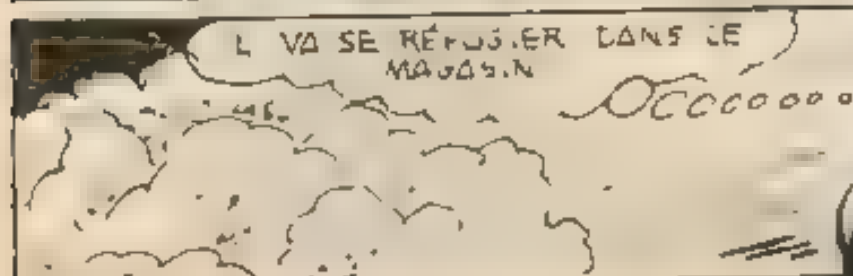 IL VA SE RÉFUGIER DANS LE
MAGASIN